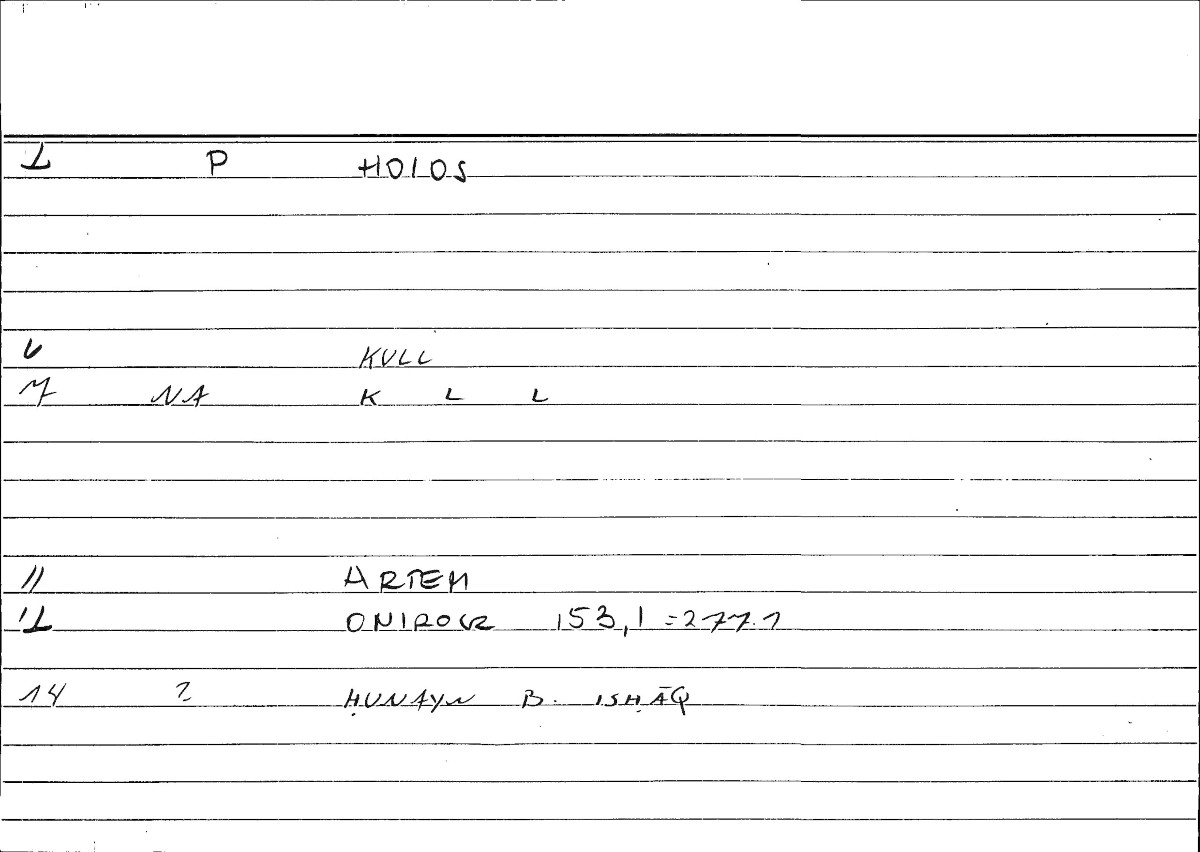 1 P HOLOS
6 KULL
7 NA K L L
11 ARTEM
12 ONIROCR 153,1 = 277.1
14 ? ḤUNAYN B. ISḤĀQ